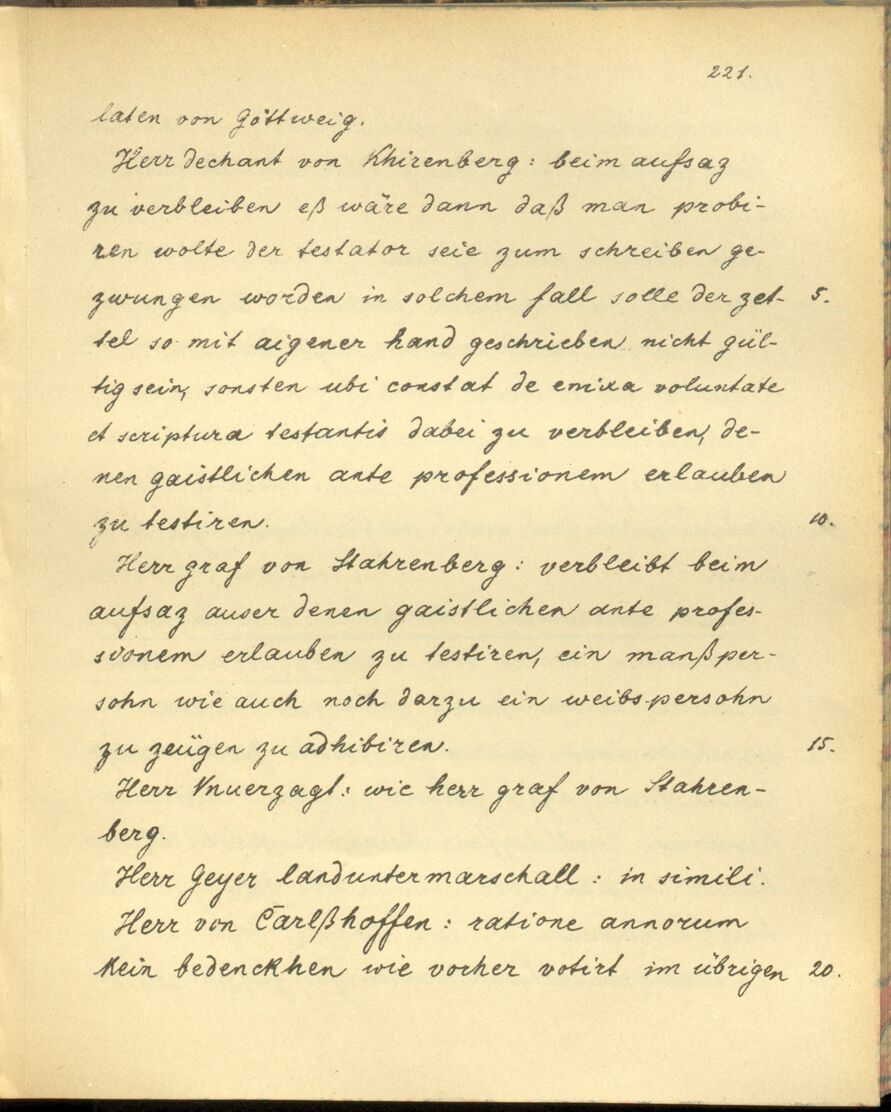 221.
laten von Göttweig.
Herr dechant von Khirenberg: beim aufsaz
zu verbleiben eß wäre dann daß man probi-
ren wolte der testator seie zum schreiben ge-
zwungen worden in solchem fall solle der zet- 5.
tel so mit aigener hand geschrieben nicht gül-
tig sein, sonsten ubi constat de enixa voluntate
et scriptura testantis dabei zu verbleiben, de-
nen gaistlichen ante professionem erlauben
zu testiren. 10.
Herr graf von Stahrenberg: verbleibt beim
aufsaz auser denen gaistlichen ante profes-
sionem erlauben zu testiren, ein manßper-
sohn wie auch noch darzu ein weibspersohn
zu zeügen zu adhibiren. 15.
Herr Vnuerzagt: wie herr graf von Stahren-
berg.
Herr Geyer landuntermarschall: in simili.
Herr von Carlßhoffen: ratione annorum
kein bedenckhen wie vorher votirt im übrigen 20.